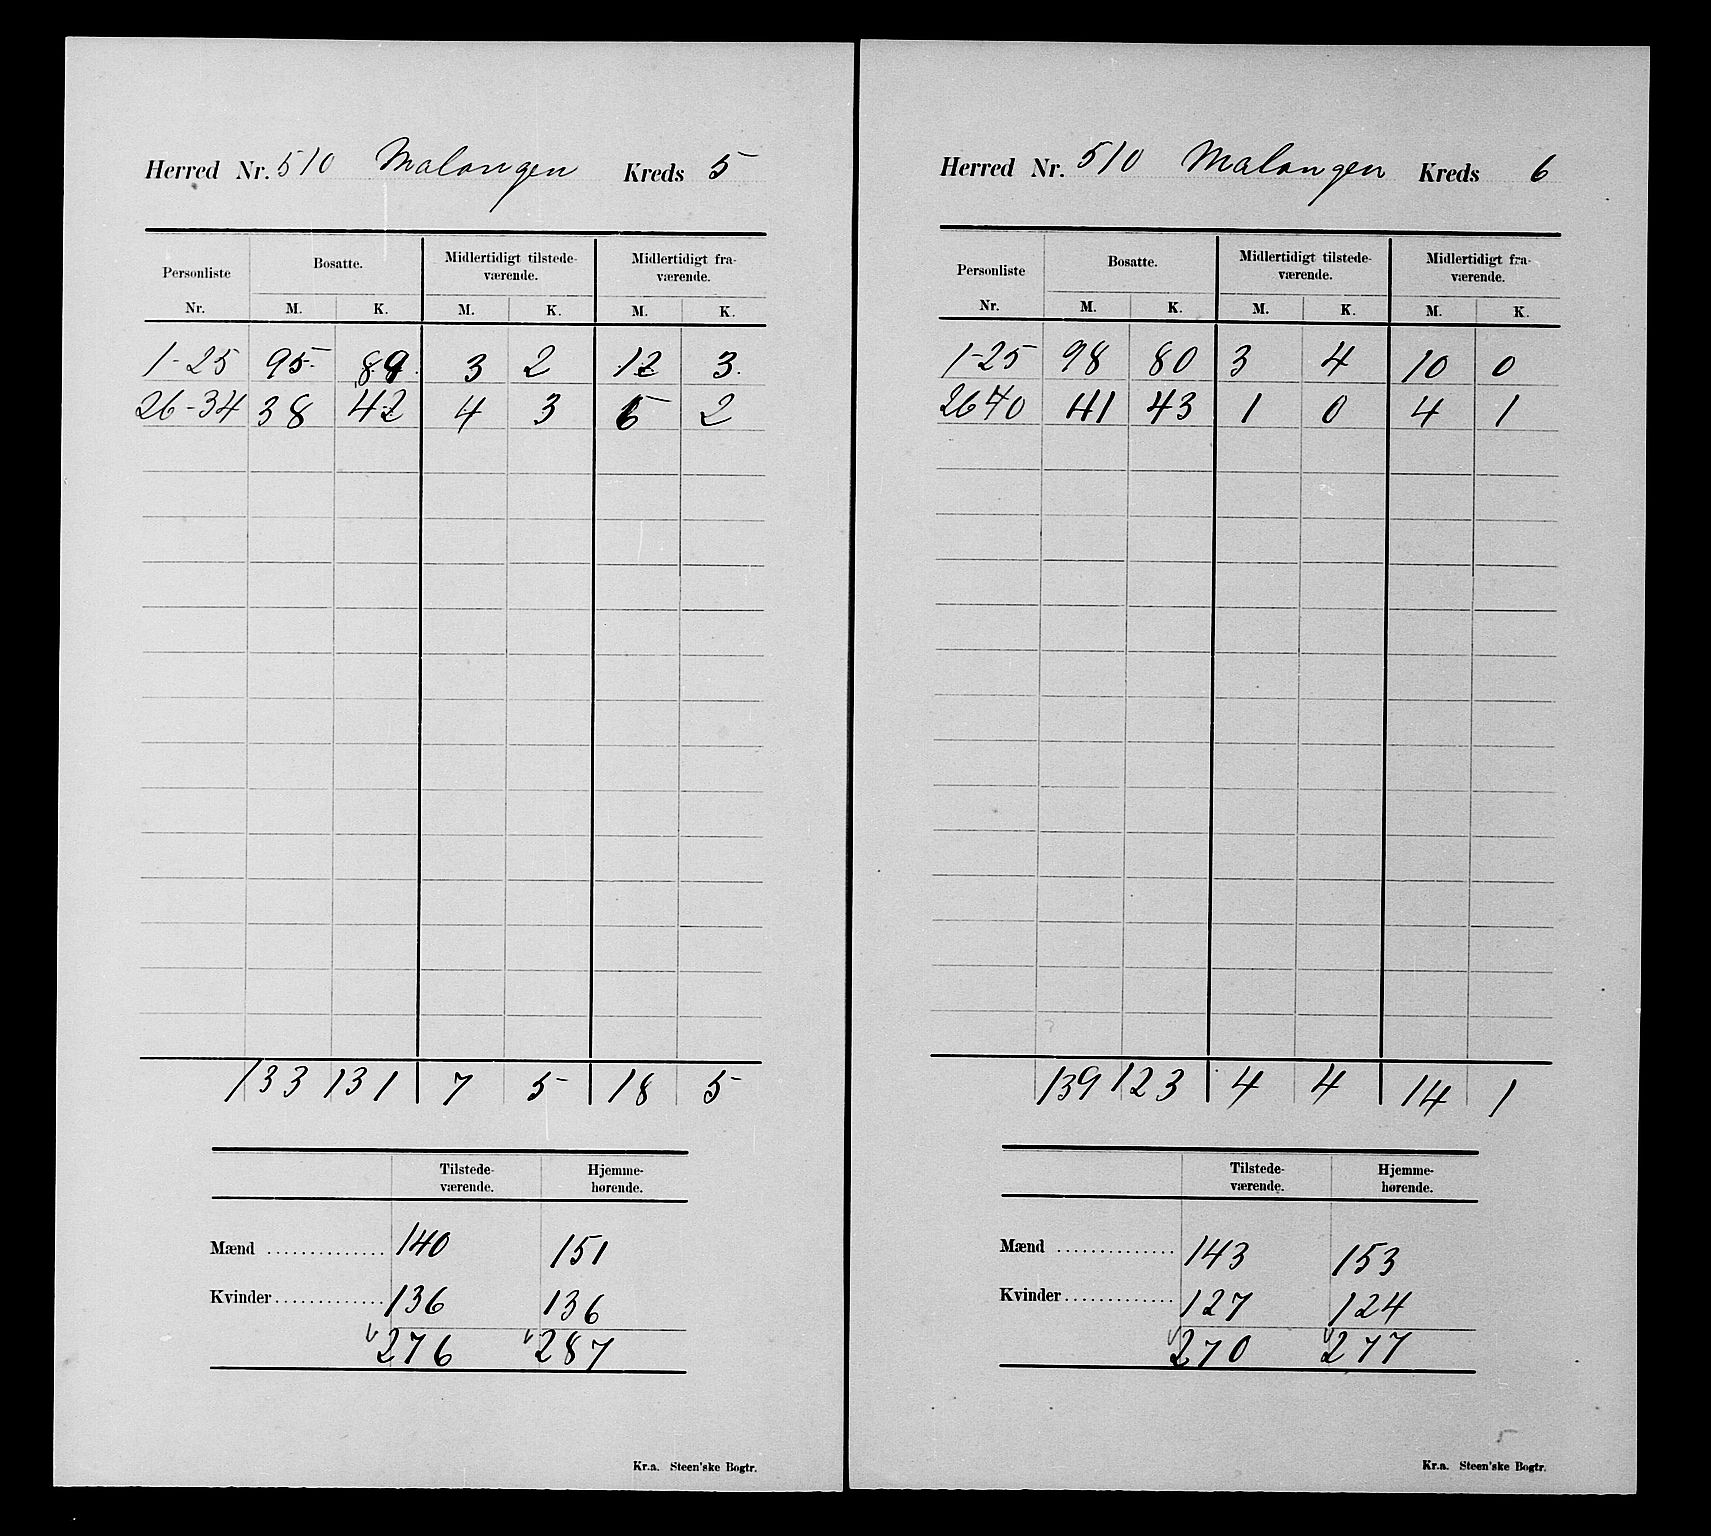 Herred Nr. 510 Malangen Kreds 5
Personliste Nr. Bosatte. Midlertidigt tilstedeværende. Midlertidigt fraværende.
M. K. M. K. M. K.
1-25 95 89 3 2 12 3
26-34 38 42 4 3 6 2
133 131 7 5 18 5
Tilstede-værende. Hjemme-hørende.
Mænd 140 151
Kvinder 136 136
276 287
Kr.a. Steen'ske Bogtr.
Herred Nr. 510 Malangen Kreds 6
Personliste Nr. Bosatte. Midlertidigt tilstede-værende. Midlertidigt fra-værende.
M. K. M. K. M. K.
1-25 98 80 3 4 10 0
26-40 41 43 1 0 4 1
139 123 4 4 14 1
Tilstede-værende. Hjemme-hørende.
Mænd 143 153
Kvinder 127 124
270 277
Kr.a. Steen'ske Bogtr.